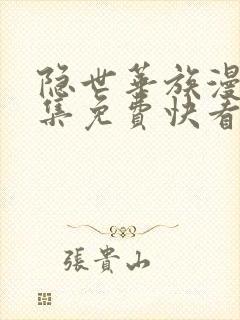 隐世华族漫
集免費快看
張貴山